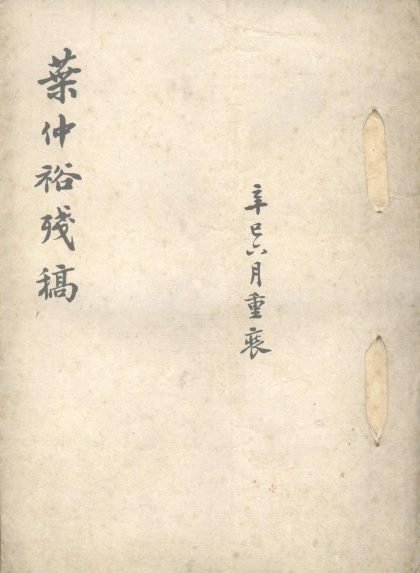 辛巳六月重裝
葉仲裕殘稿